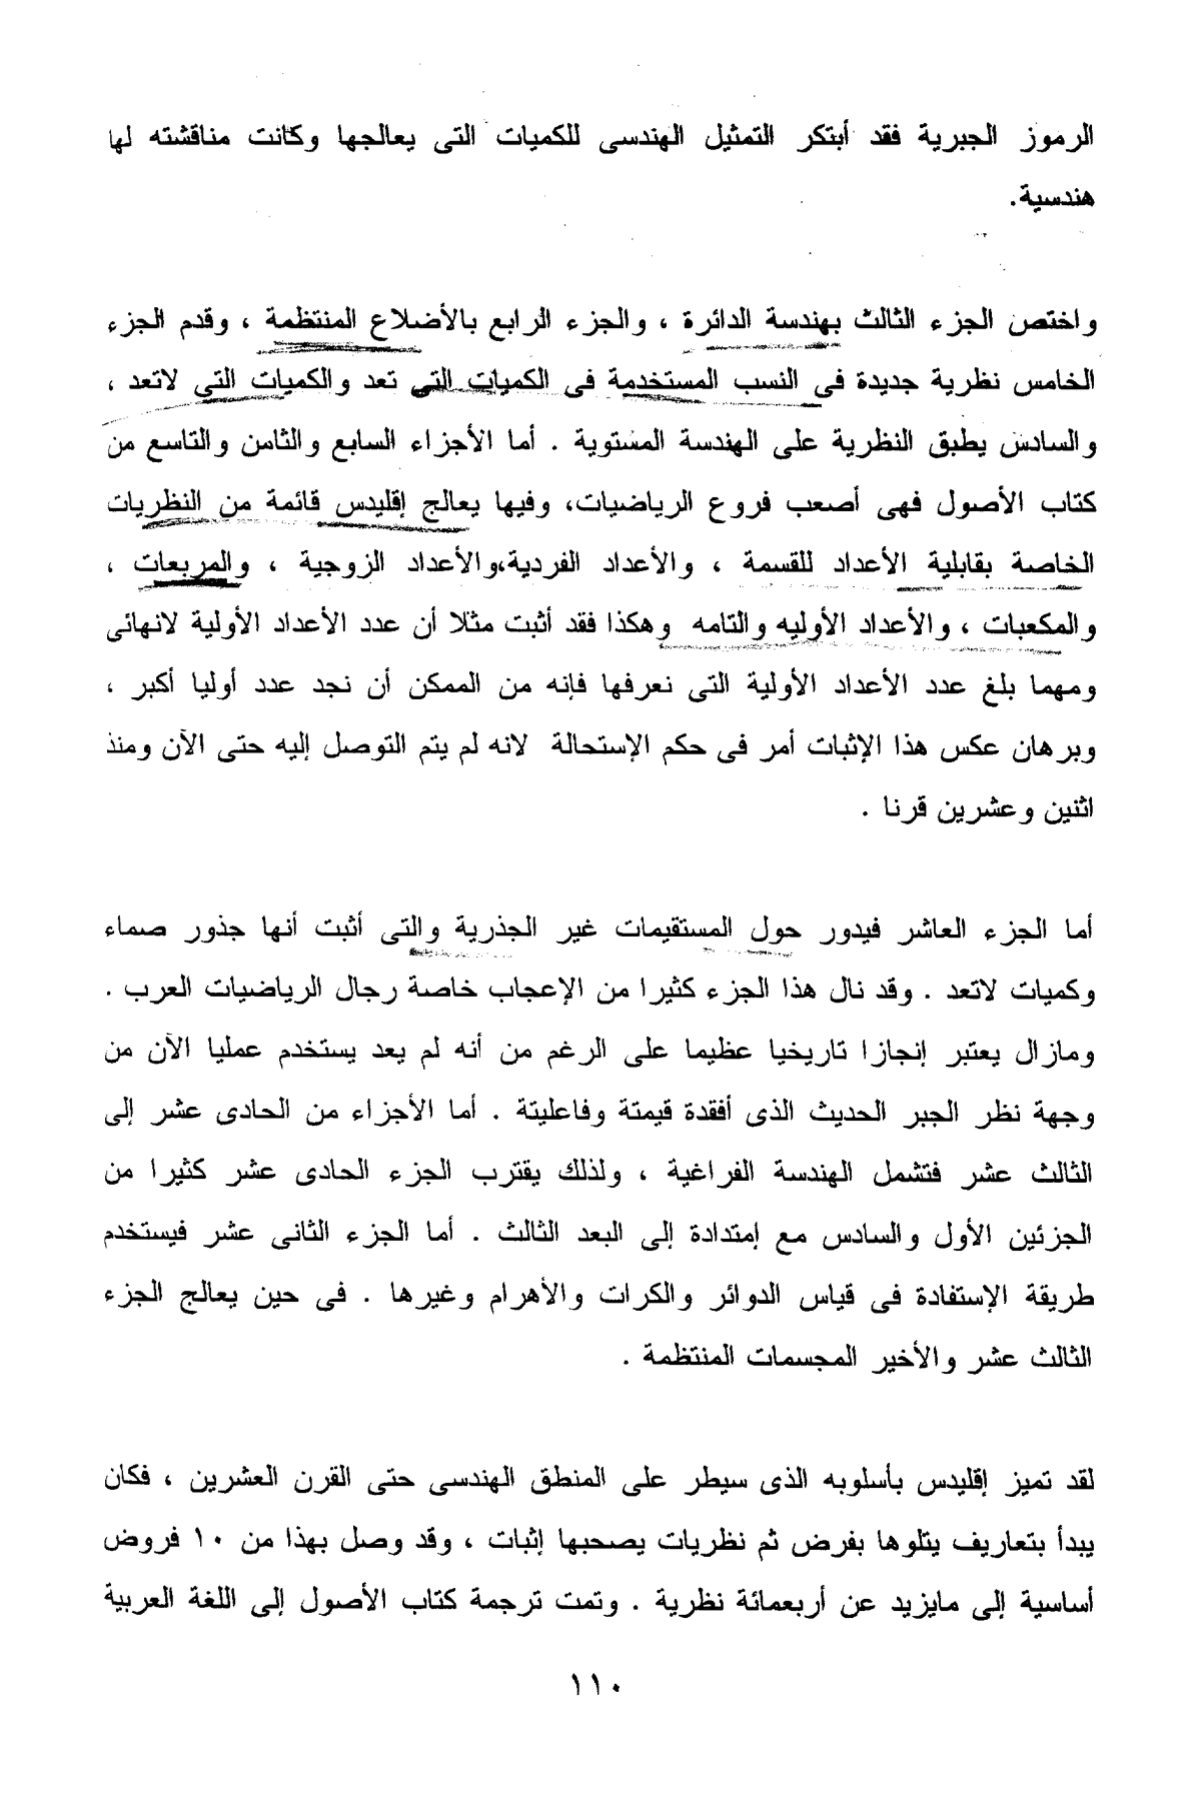 الرموز الجبرية فقد أبتكر التمثيل الهندسى للكميات التى يعالجها وكانت مناقشته لها
هندسية.
واختص الجزء الثالث بهندسة الدائرة ، والجزء الرابع بالأضلاع المنتظمة ، وقدم الجزء
الخامس نظرية جديدة فى النسب المستخدمة فى الكميات التى تعد والكميات التى لاتعد ،
والسادس يطبق النظرية على الهندسة المستوية . أما الأجزاء السابع والثامن والتاسع من
كتاب الأصول فهى أصعب فروع الرياضيات، وفيها يعالج إقليدس قائمة من النظريات
الخاصة بقابلية الأعداد للقسمة ، والأعداد الفردية،والأعداد الزوجية ، والمربعات ،
والمكعبات ، والأعداد الأوليه والتامه وهكذا فقد أثبت مثلا أن عدد الأعداد الأولية لانهائى
ومهما بلغ عدد الأعداد الأولية التى نعرفها فإنه من الممكن أن نجد عدد أوليا أكبر ،
وبرهان عكس هذا الإثبات أمر فى حكم الإستحالة لانه لم يتم التوصل إليه حتى الآن ومنذ
اثنين وعشرين قرنا .
أما الجزء العاشر فيدور حول المستقيمات غير الجذرية والتى أثبت أنها جذور صماء
وكميات لاتعد . وقد نال هذا الجزء كثيرا من الإعجاب خاصة رجال الرياضيات العرب .
ومازال يعتبر إنجازا تاريخيا عظيما على الرغم من أنه لم يعد يستخدم عمليا الآن من
وجهة نظر الجبر الحديث الذى أفقدة قيمتة وفاعليتة . أما الأجزاء من الحادى عشر إلى
الثالث عشر فتشمل الهندسة الفراغية ، ولذلك يقترب الجزء الحادى عشر كثيرا من
الجزئين الأول والسادس مع إمتدادة إلى البعد الثالث . أما الجزء الثانى عشر فيستخدم
طريقة الإستفادة فى قياس الدوائر والكرات والأهرام وغيرها . فى حين يعالج الجزء
الثالث عشر والأخير المجسمات المنتظمة .
لقد تميز إقليدس بأسلوبه الذى سيطر على المنطق الهندسى حتى القرن العشرين ، فكان
يبدأ بتعاريف يتلوها بفرض ثم نظريات يصحبها إثبات ، وقد وصل بهذا من ١٠ فروض
أساسية إلى مايزيد عن أربعمائة نظرية . وتمت ترجمة كتاب الأصول إلى اللغة العربية
١١٠